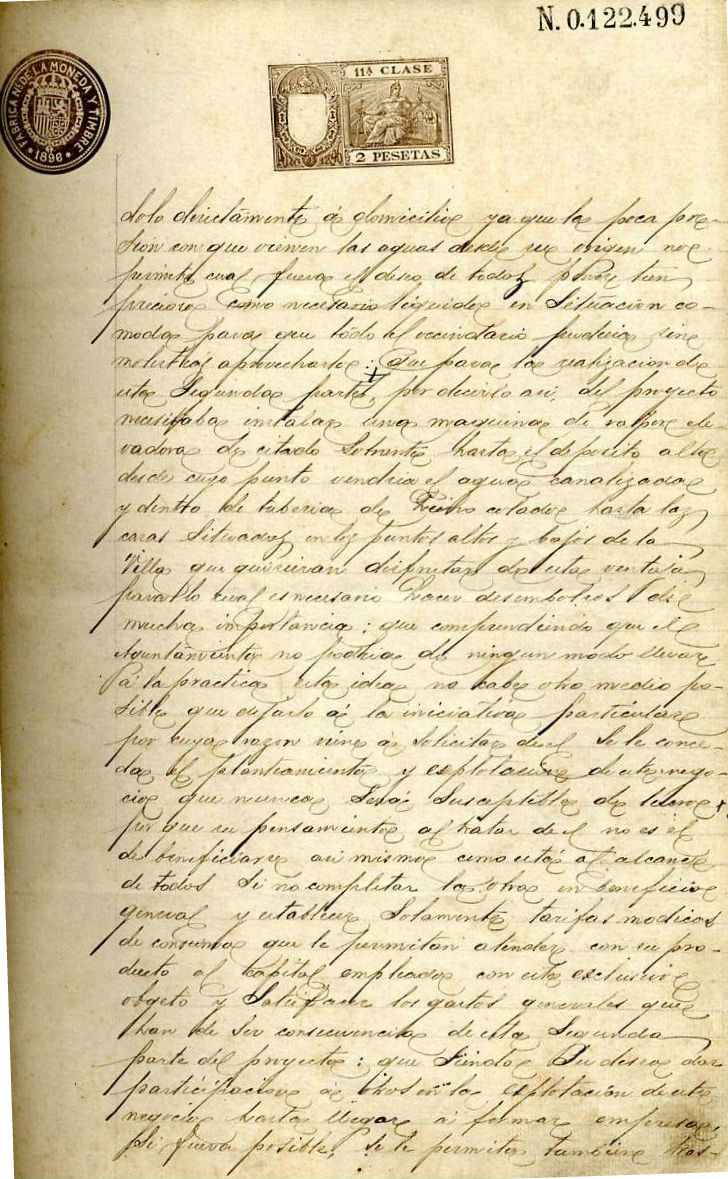 N. 0.122.499
FABRICA N. DE LA MONEDA Y TIMBRE
1896
11ª CLASE
2 PESETAS
dolo directamente á domicilio ya que la poca pre-
sion con que vienen las aguas desde su origen no
permite cual fuera el deseo de todos poner tan
precioso como necesario liquido en situacion co-
moda para que todo el vecindario pudiera sin
molestias aprovecharlo: Que para la realizacion de
esta segunda parte, por decirlo asi, del proyecto
necesitaba instalar una maquina de vapor ele-
vadora de citado sobrante hasta el deposito alto
desde cuyo punto vendria el agua canalizada
y dentro de tuberia de hierro colado hasta las
casas situadas en los puntos altos y bajos de la
Villa que quisieran disfrutar de esta ventaja
para lo cual es necesario hacer desembolsos de
mucha importancia: que comprendiendo que el
Ayuntamiento no podria de ningun modo llevar
á la practica esta idea no cabe otro medio po-
sible que dejarlo á la iniciativa particular
por cuya razon viene á solicitar de el se le conce-
da el planteamiento y explotacion de este nego-
cio que nunca será susceptible de lucro
por que su pensamiento al tratar de el no es el
de beneficiarse asi mismo como está al alcance
de todos si no completar la obra en beneficio
general y establecer solamente tarifas modicas
de consumo que le permitan atender con su pro-
ducto al capital empleado con este exclusivo
obgeto y satisfacer los gastos generales que
han de ser consecuencia de esta segunda
parte del proyecto: que siendo su deseo dar
participacion á otros en la explotacion de este
negocio hasta llegar á formar empresa,
si fuera posible, se le permita tambien tras-